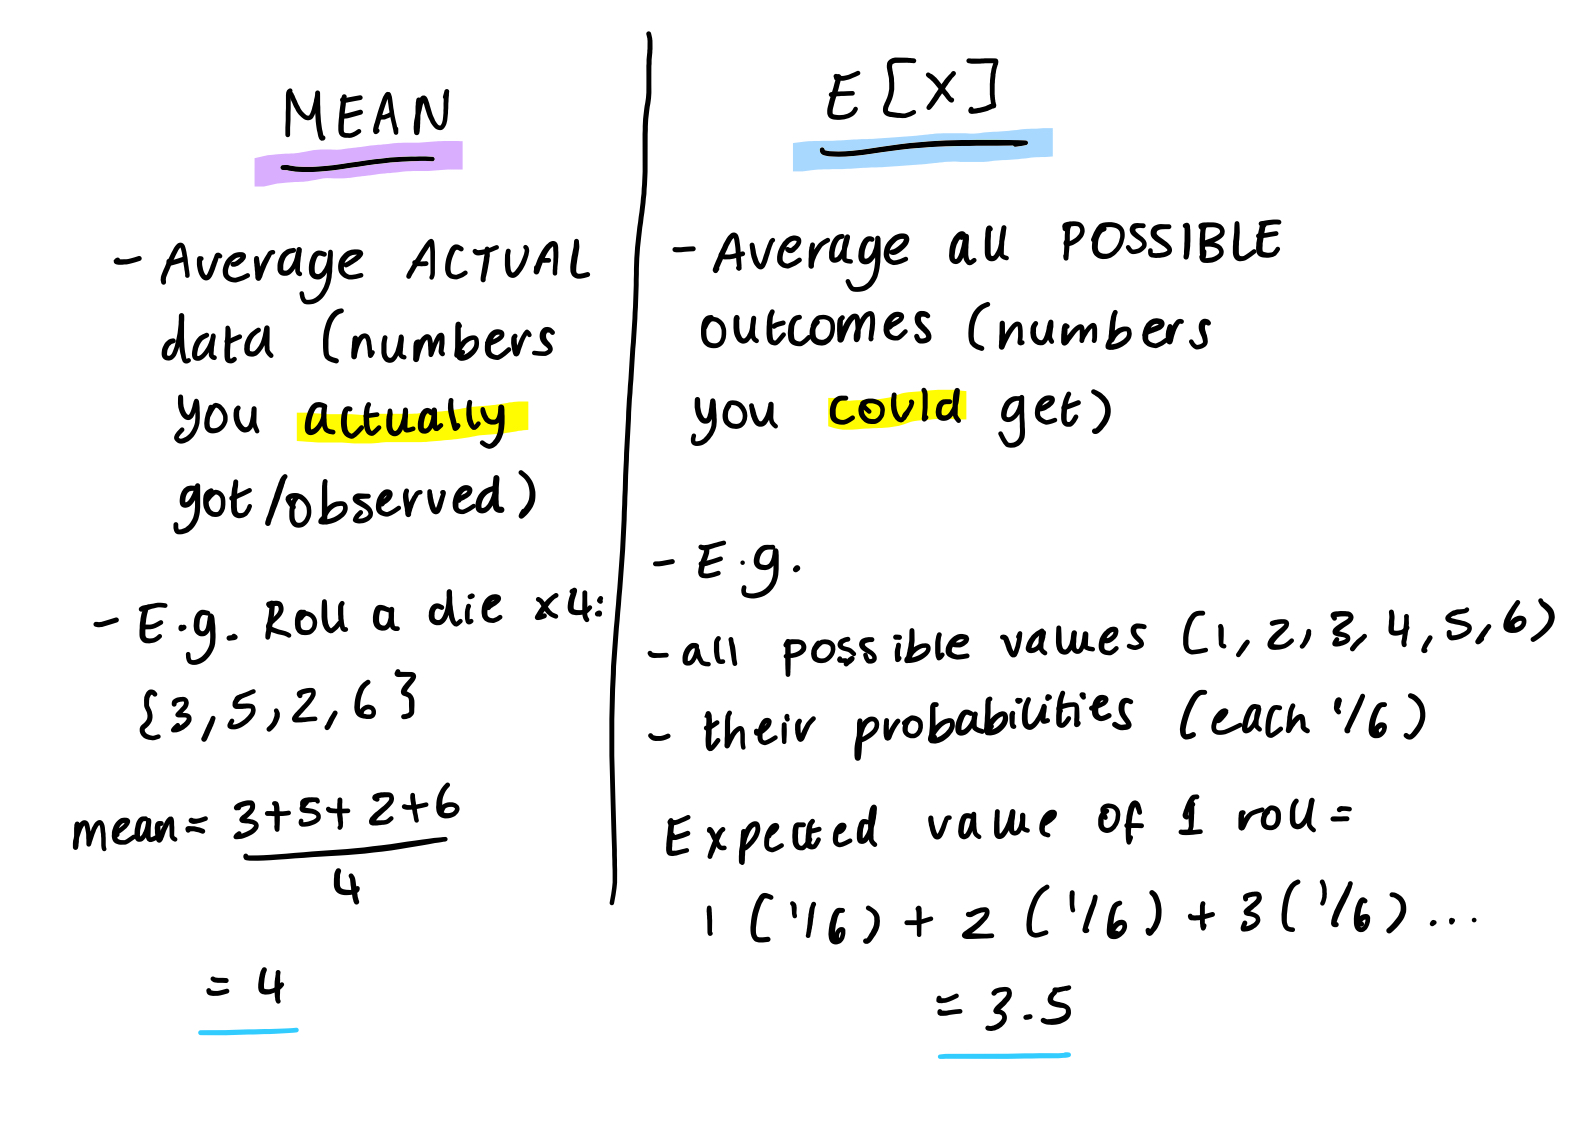 MEAN
- Average ACTUAL
data (numbers
you actually
got/observed)
- E.g. Roll a die x4:
{3, 5, 2, 6}
mean= 3+5+2+6
4
= 4
E[X]
- Average all POSSIBLE
outcomes (numbers
you could get)
- E.g.
- all possible values (1, 2, 3, 4, 5, 6)
- their probabilities (each 1/6)
Expected value of 1 roll =
1 (1/6) + 2 (1/6) + 3 (1/6) ...
= 3.5